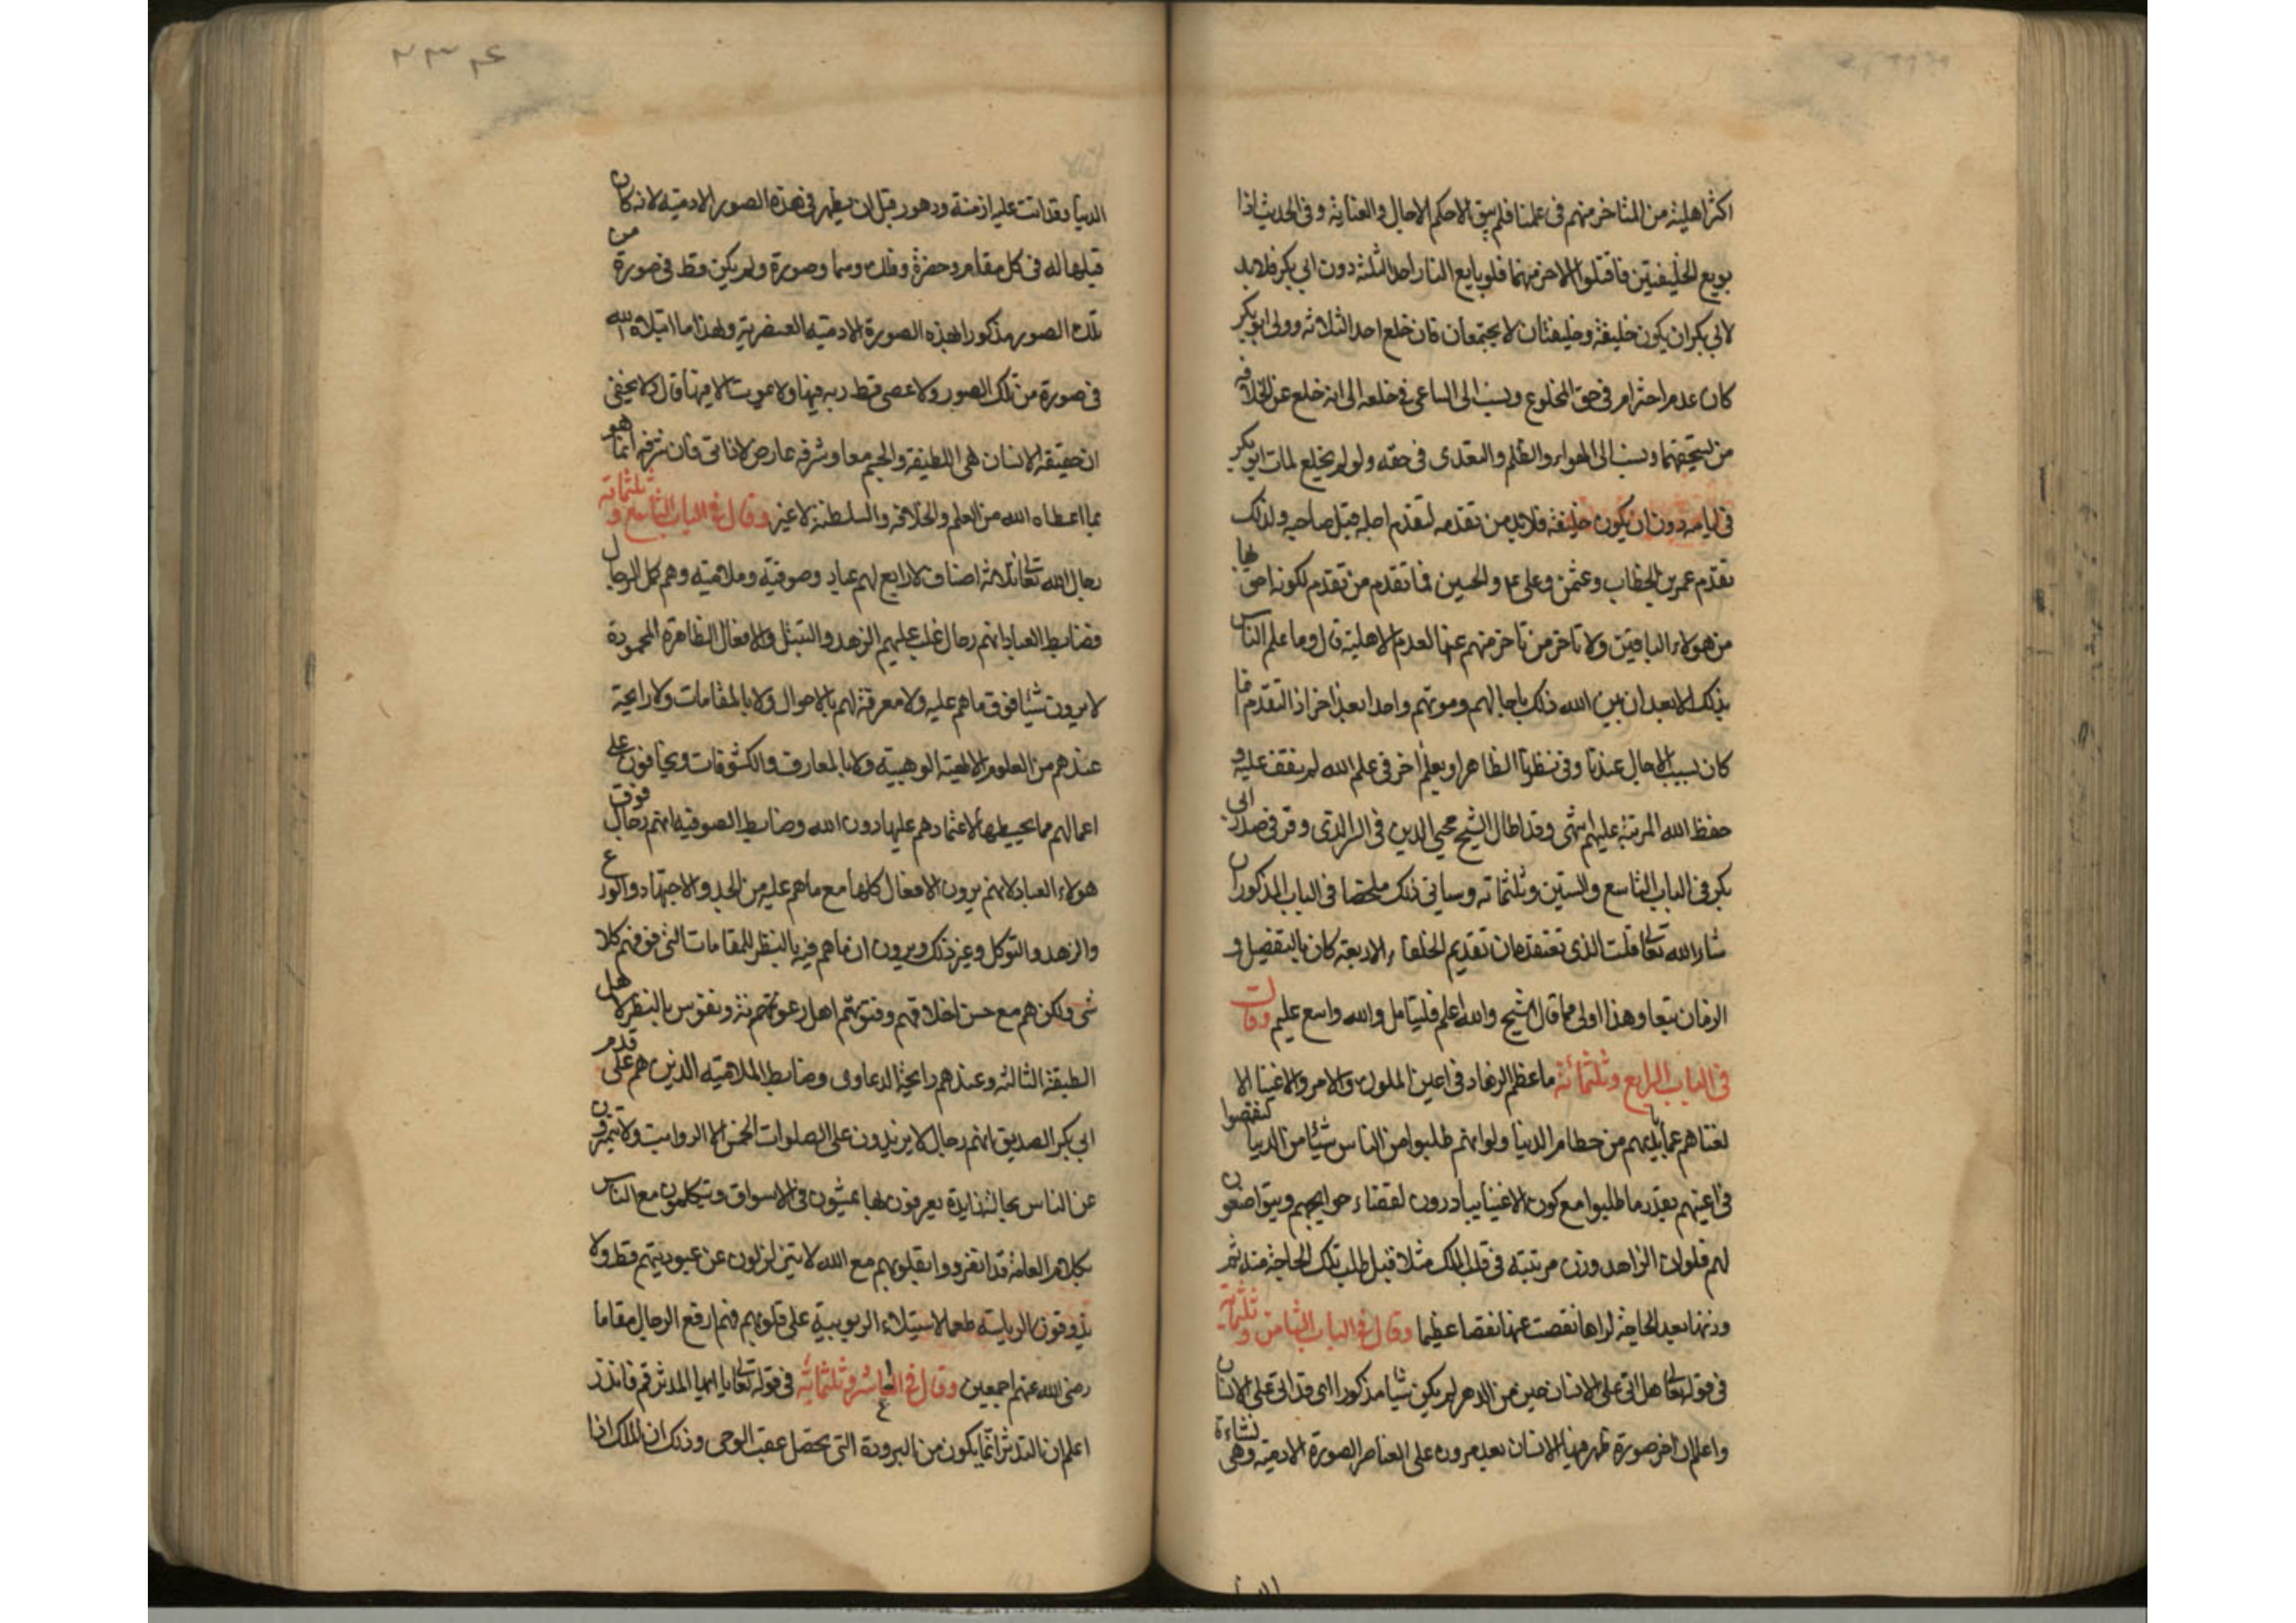 اكثر اهلية من المتاخر منهم في علمنا فلم يبق الا حكم الاجال والعناية وفي الحديث اذا
بويع الخليفتين فاقتلوا الاخر منهما فلو بايع الناس احد الثلثة دون ابي بكر فلا بد
لابي بكر ان يكون خليفة وخليفتان لا يجتمعان فان خلع احد الثلاثة وولى ابو بكر
كان عدم احترام في حق المخلوع ونسب الى الساعي في خلعه الى انه خلع عن الخلافة
من يستحقها ونسب الى الهواء والظلم والتعدى في حقه ولو لم يخلع لمات ابو بكر
في ايامه دون ان يكون خليفة فلا بد من تقدمه لتقدم اجله قبل صاحبه ولذلك
تقدم عمر بن الخطاب وعثمن وعلي والحسين فما تقدم من تقدم لكونه احق بها
من هولاء الباقين ولا تاخر من تاخر منهم عنها لعدم الاهلية قال وما علم الناس
بذلك الا بعد ان بين الله ذلك باجالهم وموتهم واحدا بعد اخر اذ التقدم انما
كان بسبب الاجال عندنا وفي نظرنا الظاهر او بعلم اخر في علم الله لم نقف عليه و
حفظ الله المرتبة عليهم انتهى وقد اطال الشيخ محيي الدين في الرد وقرر في صدر ابي
بكر في الباب التاسع والستين وثلثمائه وسياتي ذلك ملخصا في الباب المذكور ان
شاء الله تعالى قلت الذي نعتقده ان تقديم الخلفاء الاربعة كان بالتفضيل و
الزمان تبعا وهذا اولى مما قال الشيخ والله اعلم فليتامل والله واسع عليم وقال
في الباب الرابع وثلثمائة ما عظم الزهاد في اعين الملوك والامر والاغنيا الا
لغناهم عما بايديهم من حطام الدنيا ولو انهم طلبوا من الناس شيئا من الدنيا لنقصوا
في اعينهم بقدر ما طلبوا مع كون الاغنيا يبادرون لقضاء حوايجهم ويتواضعون
لهم فلو ان الزاهد وزن مرتبته في قلب الملك مثلا قبل طلب تلك الحاجة منه ثم
وزنها بعد الحاجة لراها نقصت عنها نقصا عظيما وقال في الباب الثامن وثلثمائة
في قوله تعالى هل اتى على الانسان حين من الدهر لم يكن شيا مذكورا اي قد اتى على الانسان
واعلم ان اخر صورة ظهر فيها الانسان بعد مروره على العناصر الصورة الادمية وهي نشاءة
الدنيا وقد اتت عليه ازمنة ودهور قبل ان يظهر في هذه الصور الادمية لانه كان
قبلها له في كل مقام وحضرة وفلك وسما وصورة ولم يكن قط في صورة من
تلك الصور مذكورا بهذه الصورة الادمية العنصرية ولهذا ما ابتلاه الله
في صورة من تلك الصور ولا عصى قط ربه فيها ولا يموت الا فيها قال ولا يخفى
ان حقيقة الانسان هي اللطيفة والجسم معا وشرفه عارض لا ذاتي فان شرفه انما هو
بما اعطاه الله من العلم والخلافه والسلطنة لا غير وقال في الباب التاسع وثلثمائة
رجال الله تعالى ثلاثة اصناف لا رابع لهم عباد وصوفية وملامتيه وهم كمل الرجال
فضابط العباد انهم رجال غلب عليهم الزهد والتبتل والافعال الظاهرة المحمودة
لا يرون شيئا فوق ما هم عليه ولا معرفة لهم بالاحوال ولا بالمقامات ولا رايحة
عندهم من العلوم الالهية الوهبية ولا بالمعارف والكشوفات ويخافون على
اعمالهم مما يحبطها لاعتمادهم عليها دون الله وضابط الصوفية انهم رجال فوق
هولاء العباد لانهم يرون الافعال كلها مع ما هم عليه من الجد والاجتهاد والورع
والزهد والتوكل وغير ذلك ويرون ان ما هم فيه بالنظر للمقامات التي فوقهم كلا
شى ولكن هم مع حسن اخلاقهم وفتوتهم اهل رعونة ونفوس بالنظر لاهل
الطبقة الثالثه وعندهم رايحة الدعاوى وضابط الملامتيه الذين هم على قدم
ابي بكر الصديق انهم رجال لا يزيدون على الصلوات الخمس الا الرواتب ولا يتميزون
عن الناس بحالة زايدة يعرفون بها يمشون في الاسواق ويتكلمون مع الناس
بكلام العامة قد انفردوا بقلوبهم مع الله لا يتزلزلون عن عبوديتهم قط ولا
يذوقون الرياسة طعما لاستيلاء الربوبية على قلوبهم فهم ارفع الرجال مقاما
رضى الله عنهم اجمعين وقال في العاشر وثلثمائة في قوله تعالى يا ايها المدثر قم فانذر
اعلم ان التدثر انما يكون من البرودة التي تحصل عقب الوحي وذلك ان الملك اذا